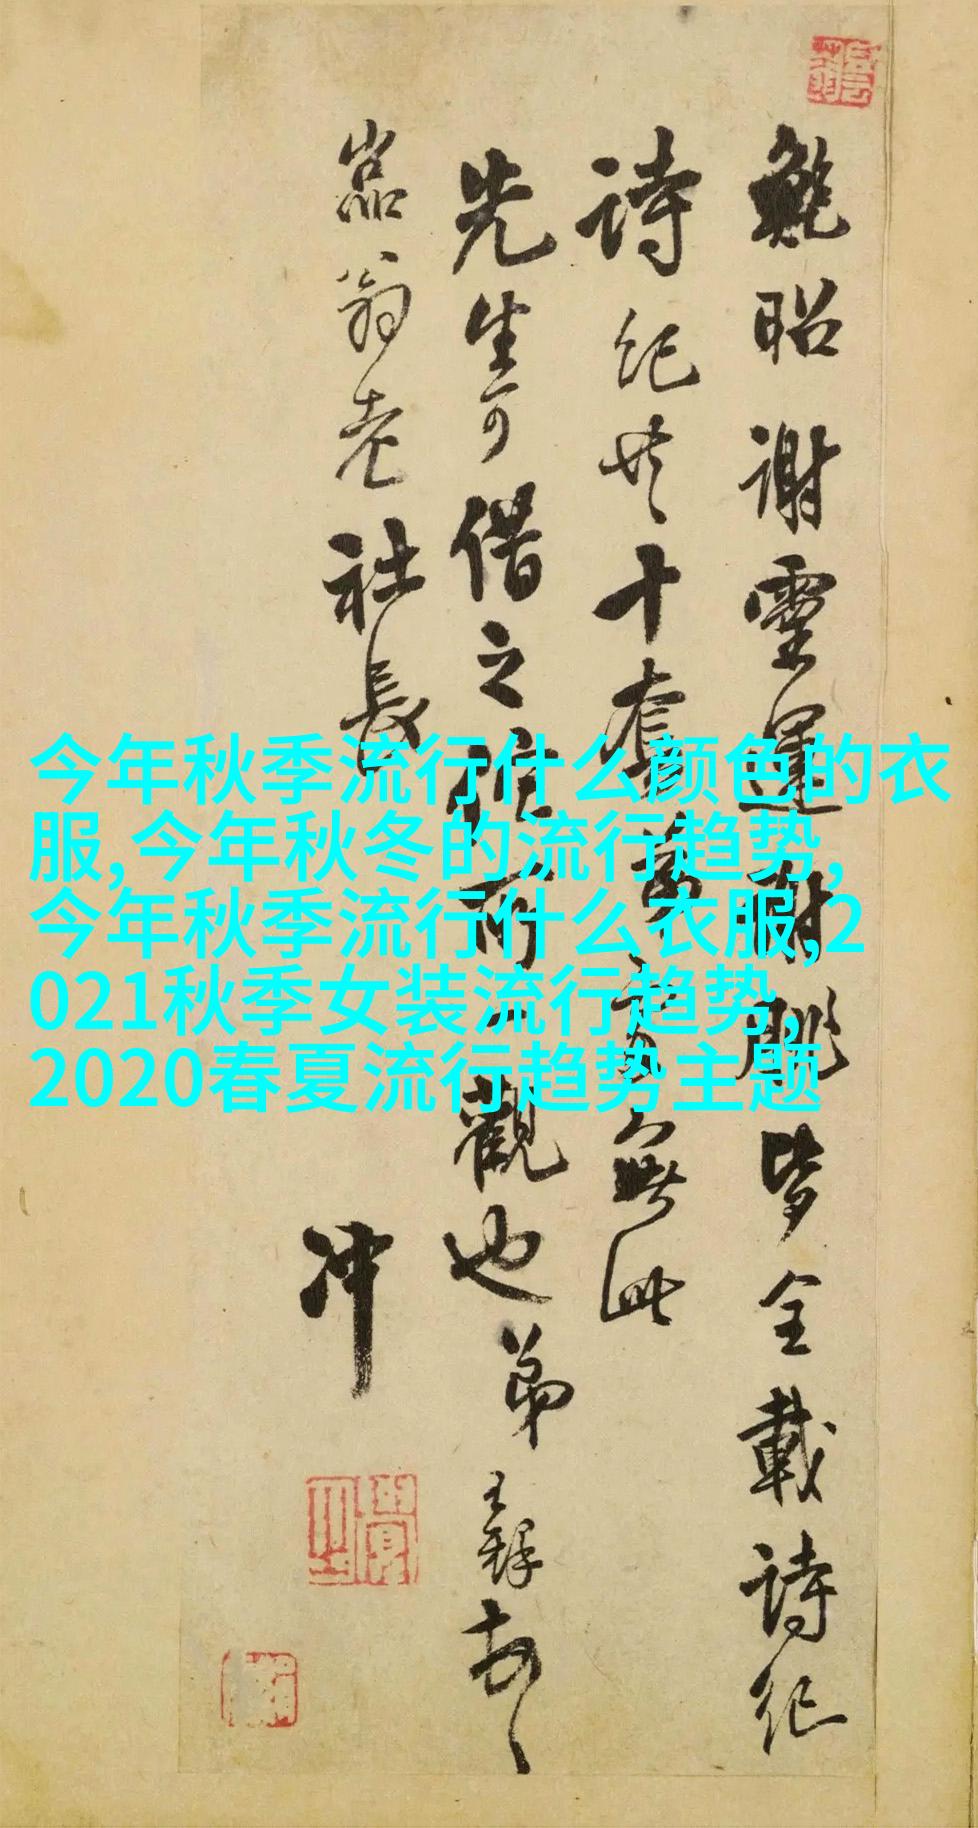 鲍昭谢靈運謝朓皆全載詩纪
詩纪共十套
無此
先生可借之
觀也弟王鐸
磊翁老社長
冲
今年秋季流行什么颜色的衣
服,今年秋冬的流行趋势,
今年秋季流行什么衣服,2
021秋季女装流行趋势,
2020春夏流行趋势主题